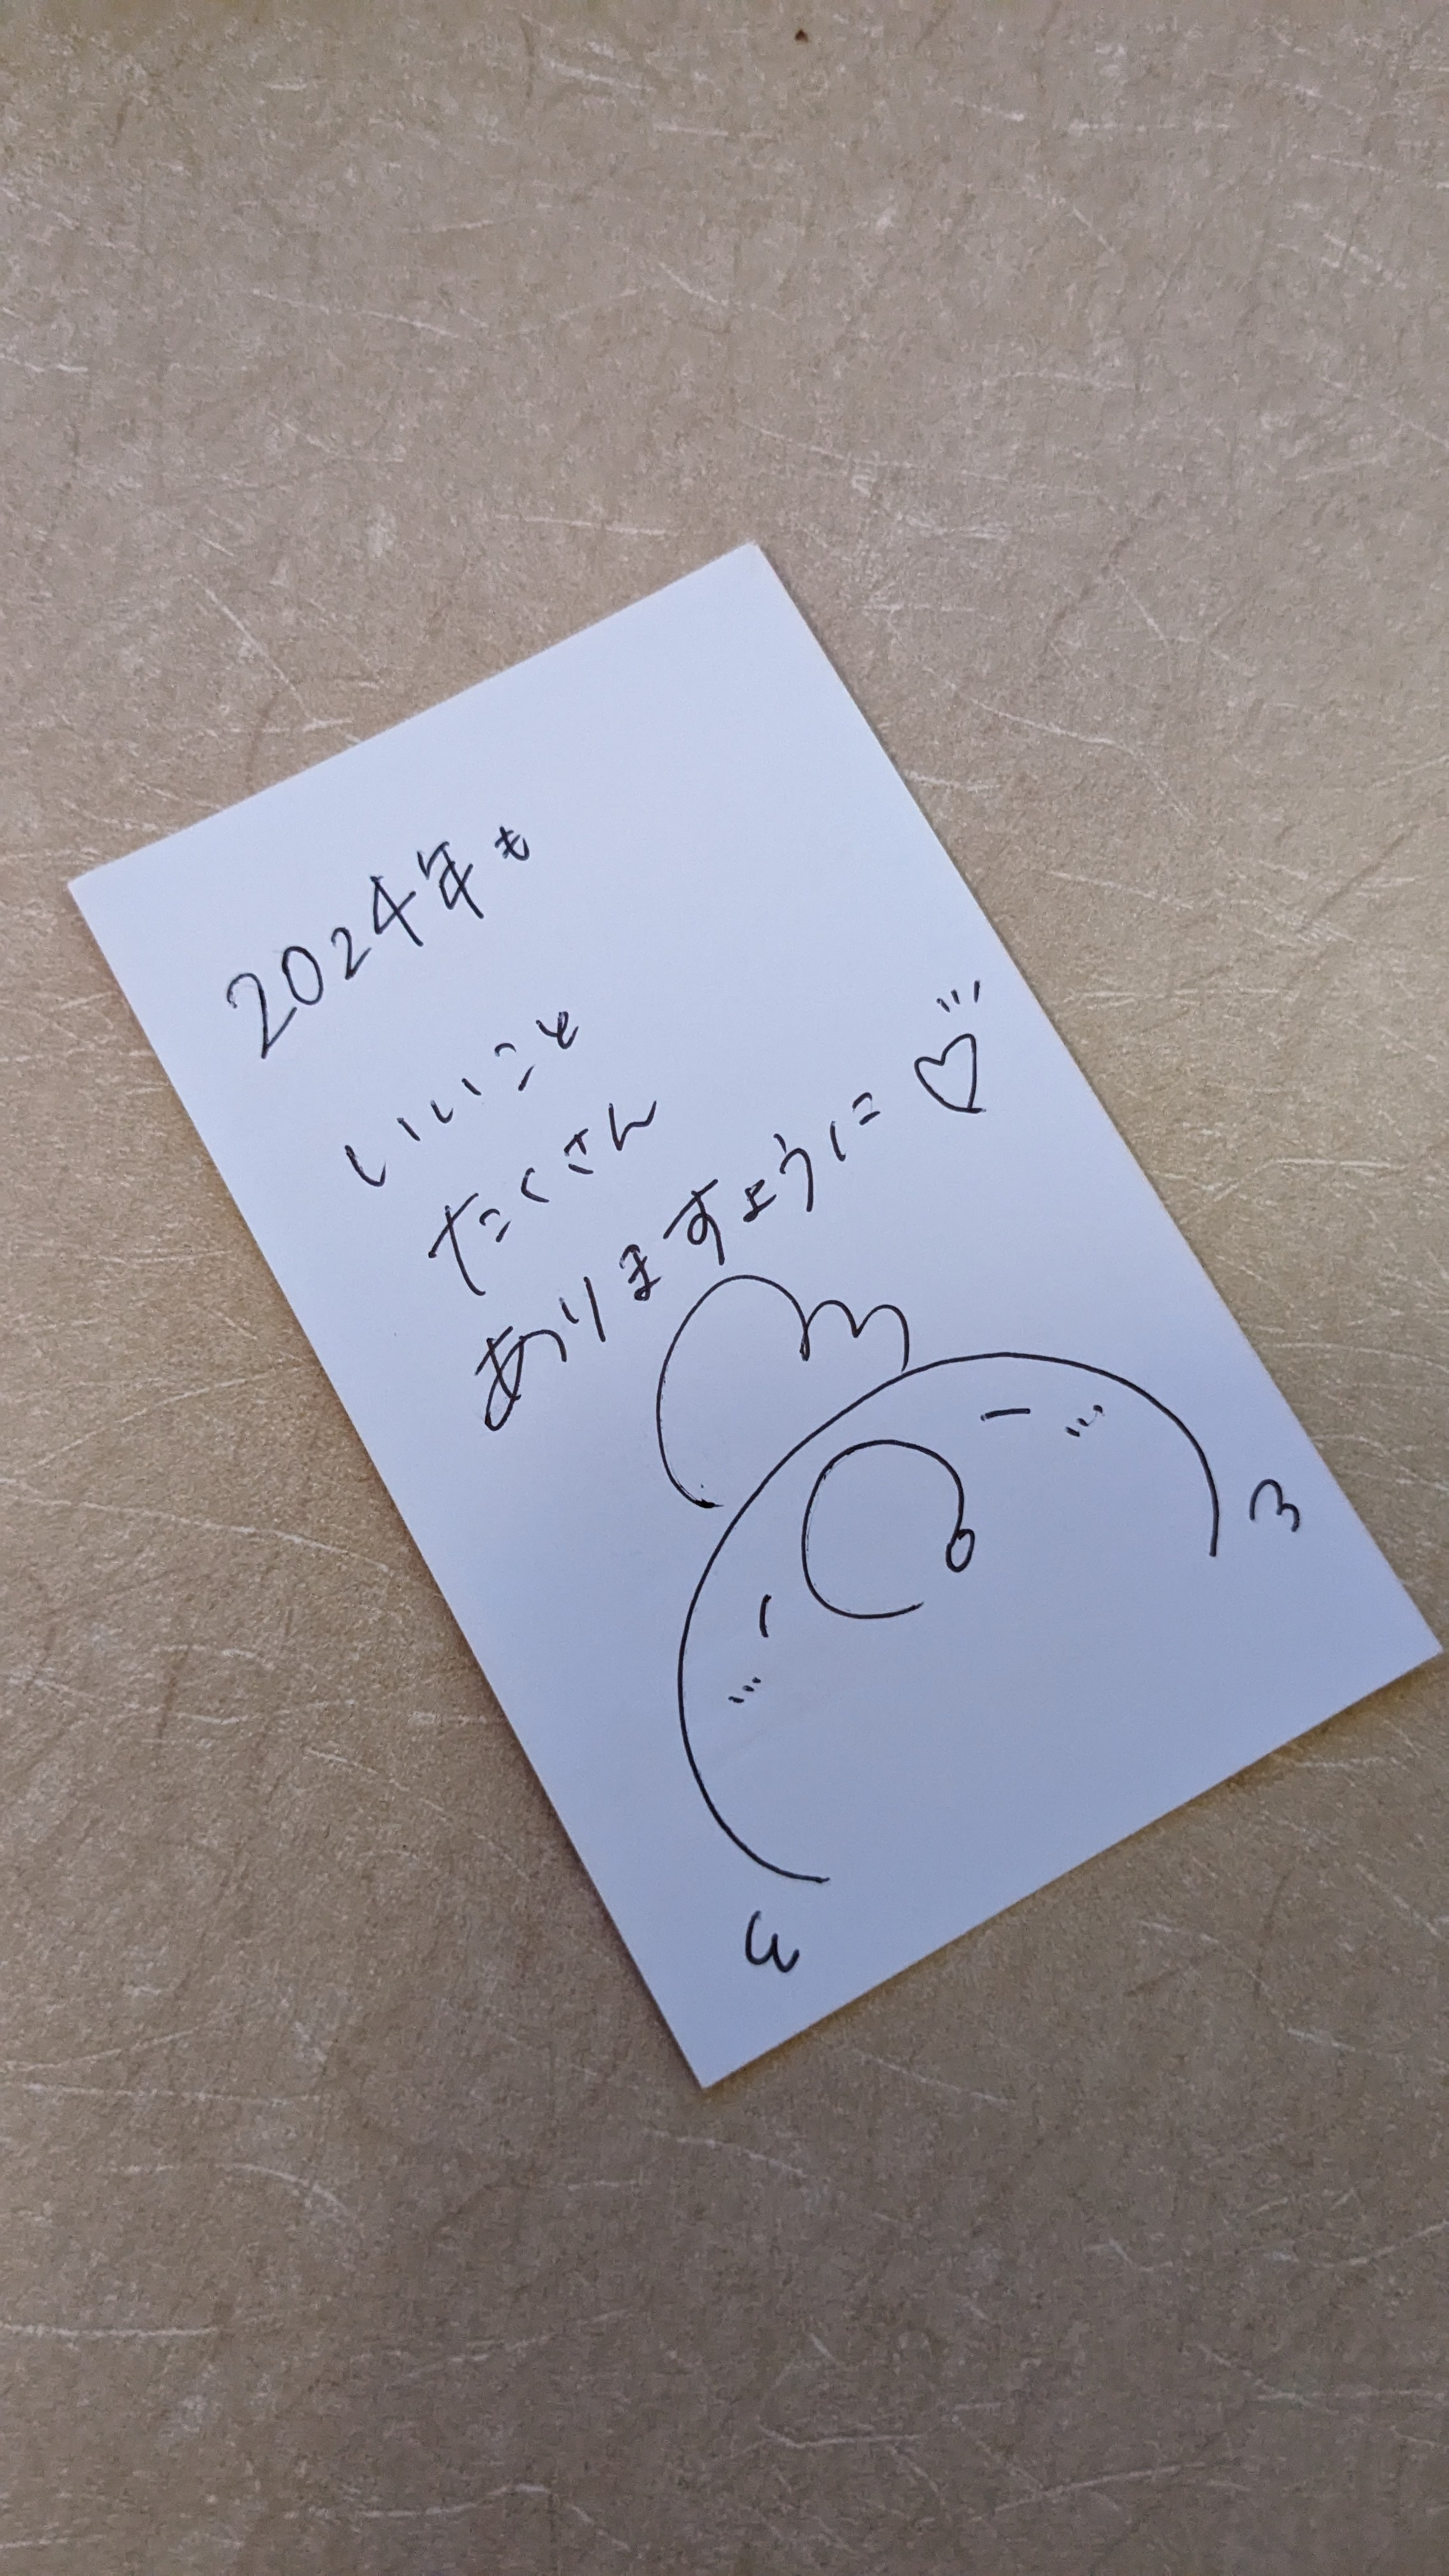 2024年も
いいこと
たくさん
ありますように♡